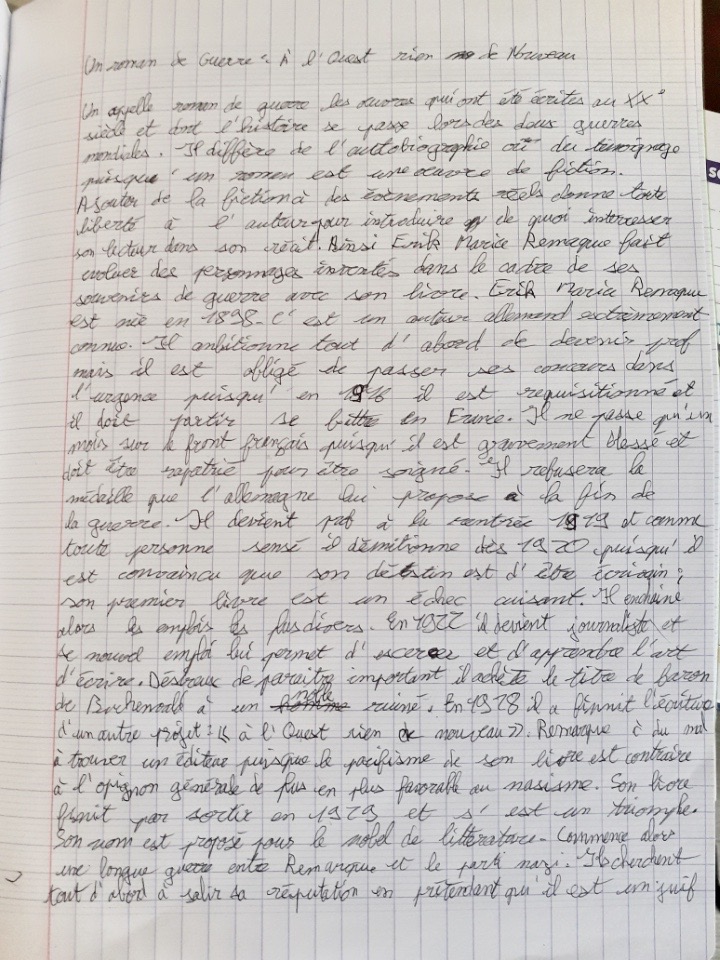 Un roman de Guerre : À l'Ouest rien de Nouveau
Un appelle roman de guerre les œuvres qui ont été écrites au XX°
siècle et dont l'histoire se passe lors des deux guerres
mondiales. Il diffère de l'autobiographie où du témoignage
puisqu' un roman est une œuvre de fiction.
Ajouter de la fiction à des évènements réels donne toute
liberté à l'auteur pour introduire de quoi interesser
son lecteur dans son récit. Ainsi Erik Maria Remaque fait
evoluer des personnages inventés dans le cadre de ses
souvenirs de guerre avec son livre. Erik Maria Remaque
est née en 1898. C'est un auteur allemand extrèmement
connue. Il ambitionne tout d'abord de devenir prof
mais il est obligé de passer ses concours dans
l'urgence puisqu' en 1916 il est requisitionné et
il doit partir se battre en France. Il ne passe qu'un
mois sur le front français puisqu'il est gravement blessé et
doit être rapatrié pour être soigné. Il refusera la
médaille que l'allemagne lui propose à la fin de
la guerre. Il devient prof à la rentrée 1919 et comme
toute personne sensé il démitionne dès 1920 puisqu' il
est convaincu que son destin est d'être écrivain ;
son premier livre est un échec cuisant. Il enchaine
alors les emplois les plus divers. En 1922 il devient journaliste et
se nouvel emploi lui permet d' et d'apprendre l'art
d'écrire. Désireux de paraitre important il achète le titre de baron
de Buchenvald à un noble ruiné. En 1928 il a finnit l'écriture
d'un autre projet : « à l'Ouest rien de nouveau ». Remarque à du mal
à trouver un éditeur puisque le pacifisme de son livre est contraire
à l'opignon générale de plus en plus favorable au nasisme. Son livre
finnit par sortir en 1929 et s' est un triomphe.
Son nom est proposé pour le nobel de littérature. Commence alors
une longue guerre entre Remarque et le parti nazi. Ils cherchent
tout d'abord à salir sa réputation en prétendant qu'il est un juif